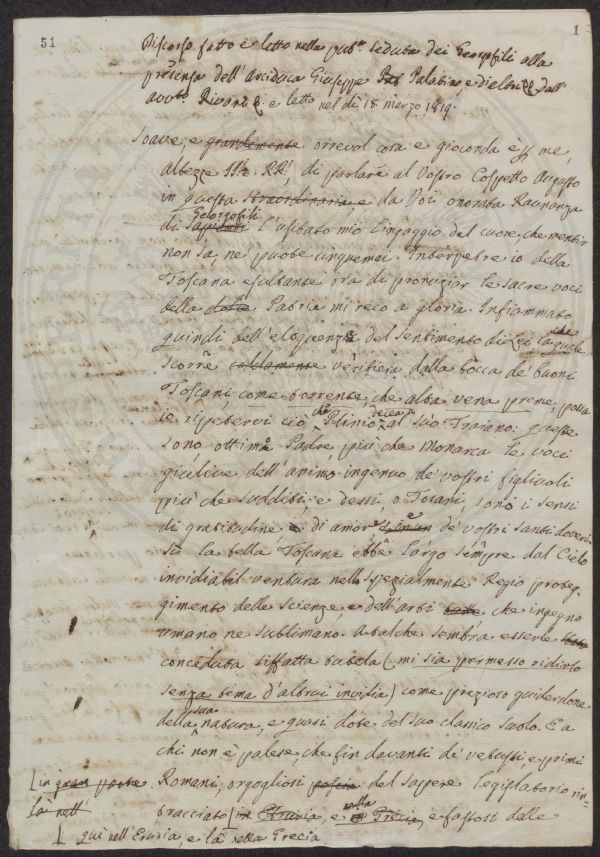 51
1
Discorso fatto e letto nella pub.ca seduta dei Georgofili alla
presenza dell'Arciduca Giuseppe Palatino, e
Rivani e letto nel dì 18 marzo 1819.
Soave, e grandemente orrevol cosa e gioconda è p me,
Altezze II. e RR., di parlare al Vostro Cospetto Augusto
in questa straordinaria, e da Voi onorata Raunanza
Georgofili
di Sapienti l'usitato mio linguaggio del cuore, che mentir
non sa, nè puote unquemai. Interpetre io della
Toscana esultante ora di pronuziar le sacre voci
della Patria mi reco a gloria. Infiammato
quindi dell'eloquenza del sentimento di Lei la quale
che
scorre caldamente veritiera dalla bocca de' buoni
Toscani come torrente, che alta vena preme, possa
io ripetervi ciò che Plinio diceva al suo Traiano: queste
sono ottimo Padre più che Monarca le voci
giulive dell'animo ingenuo de' vostri figliuoli
più che sudditi; e dessi, o Tosani, sono i sensi
di gratitudine, e di amore de' vostri santi doveri.
Sì la bella Toscana ebbe largo sempre dal Cielo
invidiabil ventura nello spezialmente Regio proteg-
gimento delle Scienze, e dell'arti che ingegno
umano ne sublimano. Atalche sembra esserle
conceduta siffatta tutela (mi sia permesso ridirlo
senza tema d'altrui invidia) come prezioso guiderdone
della sua natura, e quasi dote del suo classico suolo. E a
chi non è palese, che fin davanti de' vetusti, e primi
[in gran parte Romani, orgogliosi del sapere legislatorio rin-
là nell' tracciato [in Etruria, e nella Grecia, e fastosi delle
[ quì nell'Etruria, e là nella Grecia